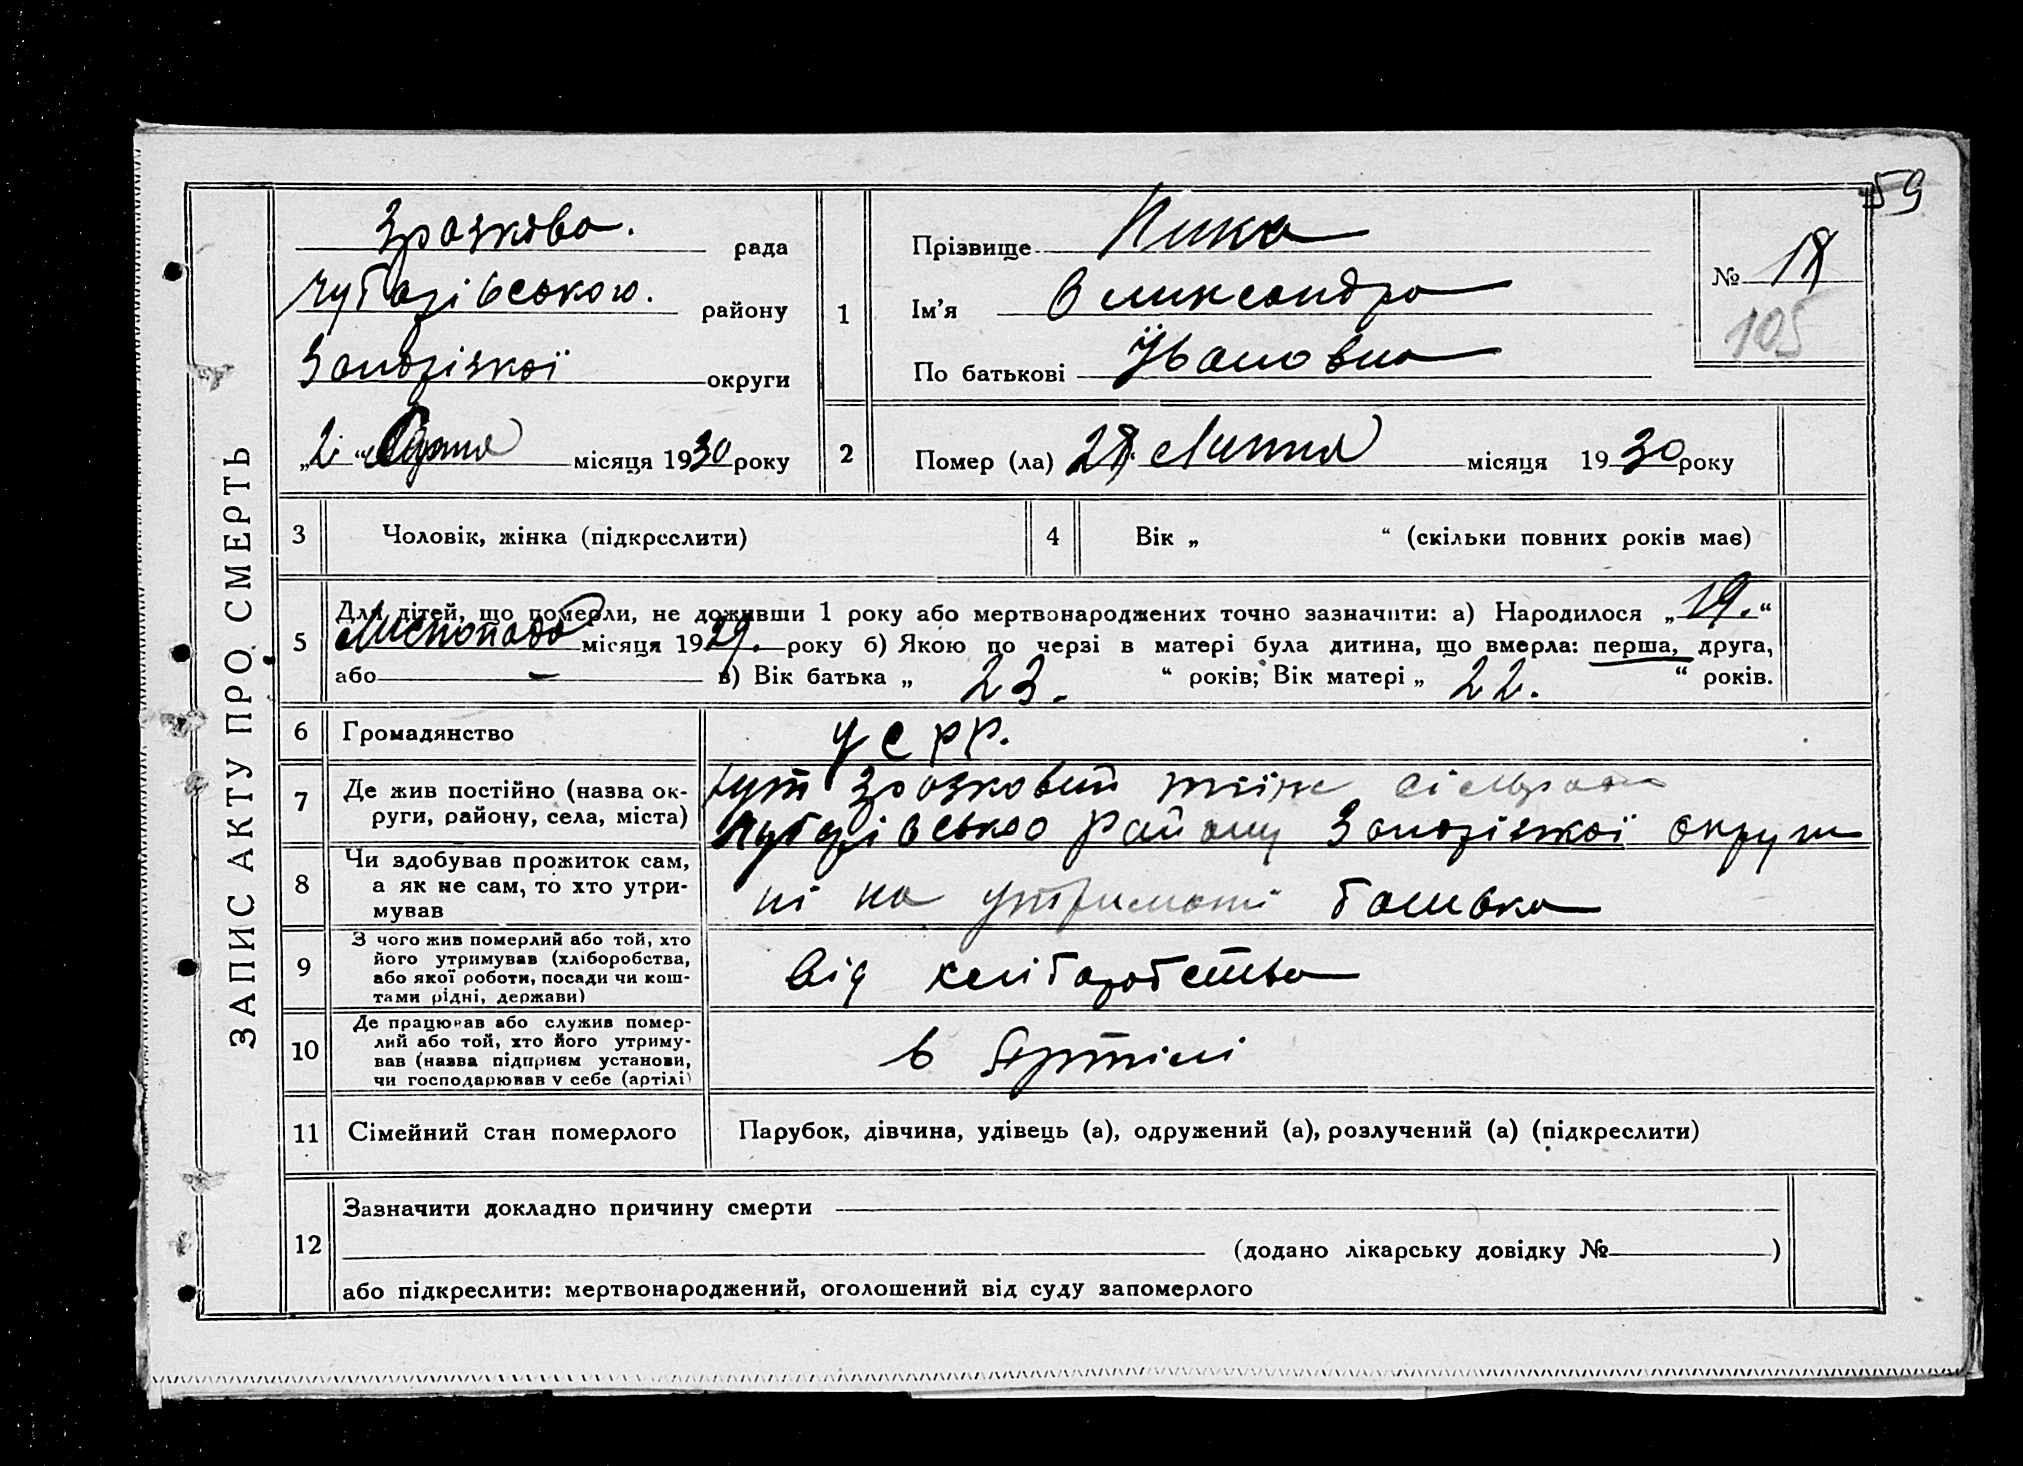 59
ЗАПИС АКТУ ПРО СМЕРТЬ
Зразкова. рада
Чубарівською. району
Запорізкої округи
„2“ Серпня місяця 1930 року
1
Прізвище Пика
Ім'я Олександра
По батькові Ивановна
№ 18
105
2 Помер (ла) 28. Липня місяця 1930 року
3 Чоловік, жінка (підкреслити)
4 Вік „ “ (скільки повних років має)
5 Для дітей, що померли, не доживши 1 року або мертвонароджених точно зазначити: а) Народилося „19.“
Листопада місяця 1929. року б) Якою по черзі в матері була дитина, що вмерла: перша, друга,
або — в) Вік батька „ 23. “ років; Вік матері „ 22. “ років.
6 Громадянство УСРР.
7 Де жив постійно (назва округи, району, села, міста)
Зразковий сільради
Чубарівсько Району Запорізкої округи
8 Чи здобував прожиток сам,
а як не сам, то хто утри-
мував
ні на утриманні батька
9 З чого жив померлий або той, хто
його утримував (хліборобства,
або якої роботи, посади чи кош-
тами рідні, держави)
від хліборобства
10 Де працював або служив помер-
лий або той, хто його утриму-
вав (назва підприєм установи,
чи господарював у себе (артілі)
в Артілі
11 Сімейний стан померлого
Парубок, дівчина, удівець (а), одружений (а), розлучений (а) (підкреслити)
12 Зазначити докладно причину смерти
(додано лікарську довідку № )
або підкреслити: мертвонароджений, оголошений від суду запомерлого